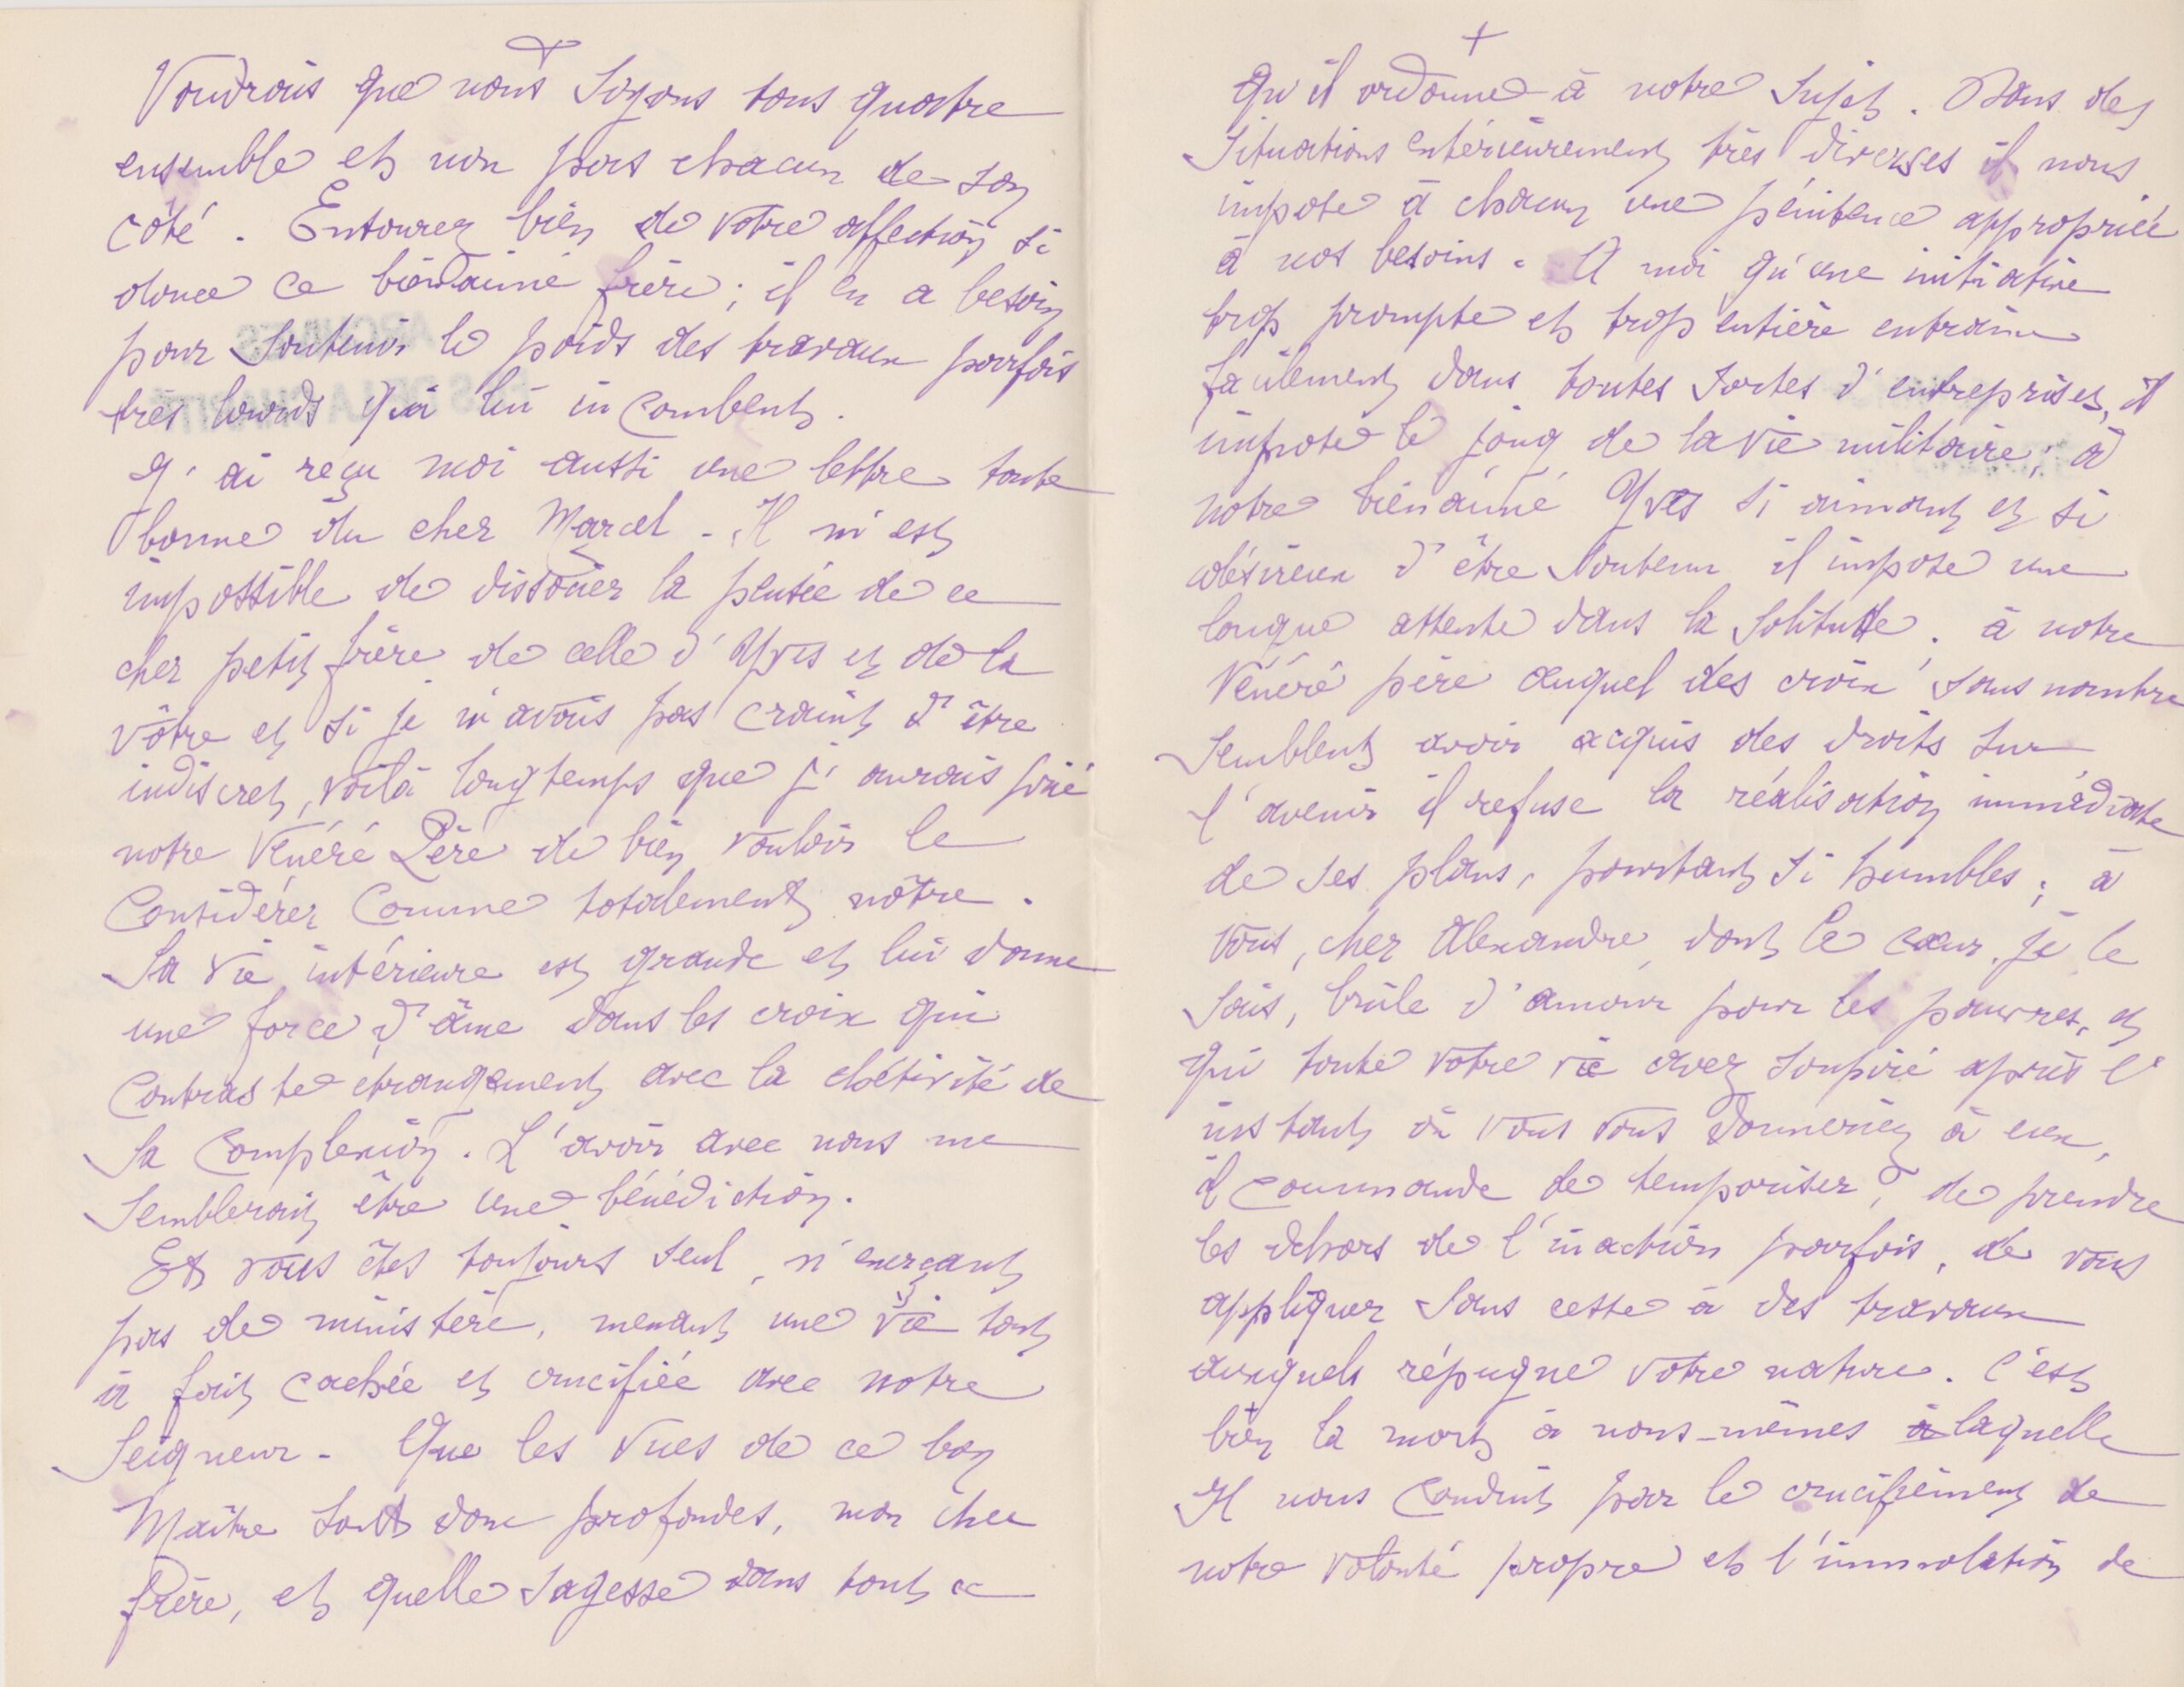 Voudrais que nous soyons tous quatre
ensemble et non pas chacun de son
côté. Entourez bien de votre affection si
douce ce bienaimé frère; il en a besoin
pour soutenir le poids des travaux parfois
très lourds qui lui incombent.
J'ai reçu moi aussi une lettre toute
bonne du cher Marcel - Il m'est
impossible de dissocier la pensée de ce
cher petit frère de celle d'Yves et de la
vôtre et si je n'avais pas craint d'être
indiscret, voilà longtemps que j'aurais prié
notre Vénéré Père de bien vouloir le
considérer comme totalement nôtre.
Sa vie intérieure est grande et lui donne
une force d'âme dans les croix qui
contraste étrangement avec la chétivité de
sa complexion. L'avoir avec nous me
semblerait être une bénédiction.
Et vous êtes toujours seul, n'exerçant
pas de ministère, menant une vie tout
à fait cachée et crucifiée avec notre
Seigneur - Que les vues de ce bon
Maître sont donc profondes, mon cher
frère, et quelle sagesse dans tout ce
+
qu'il ordonne à notre sujet. Dans des
situations extérieurement très diverses il nous
impose à chacun une pénitence appropriée
à nos besoins. A moi qu'une initiative
trop prompte et trop entière entraîne
facilement dans toutes sortes d'entreprises, il
impose le joug de la vie militaire; à
notre bienaimé Yves si aimant et si
désireux d'être soutenu il impose une
longue attente dans la solitude; à notre
Vénéré père auquel des croix sans nombre
semblent avoir acquis des droits sur
l'avenir il refuse la réalisation immédiate
de ses plans, pourtant si humbles; à
vous, cher Alexandre, dont le cœur, je le
sais, brûle d'amour pour les pauvres, et
qui toute votre vie avez soupiré après l'
instant où vous vous donneriez à eux,
il commande de temporiser, de prendre
les dehors de l'inaction parfois, de vous
appliquer sans cesse à des travaux
auxquels répugne votre nature. C'est
bien la mort à nous-mêmes à laquelle
Il nous conduit par le crucifiement de
notre volonté propre et l'immolation de